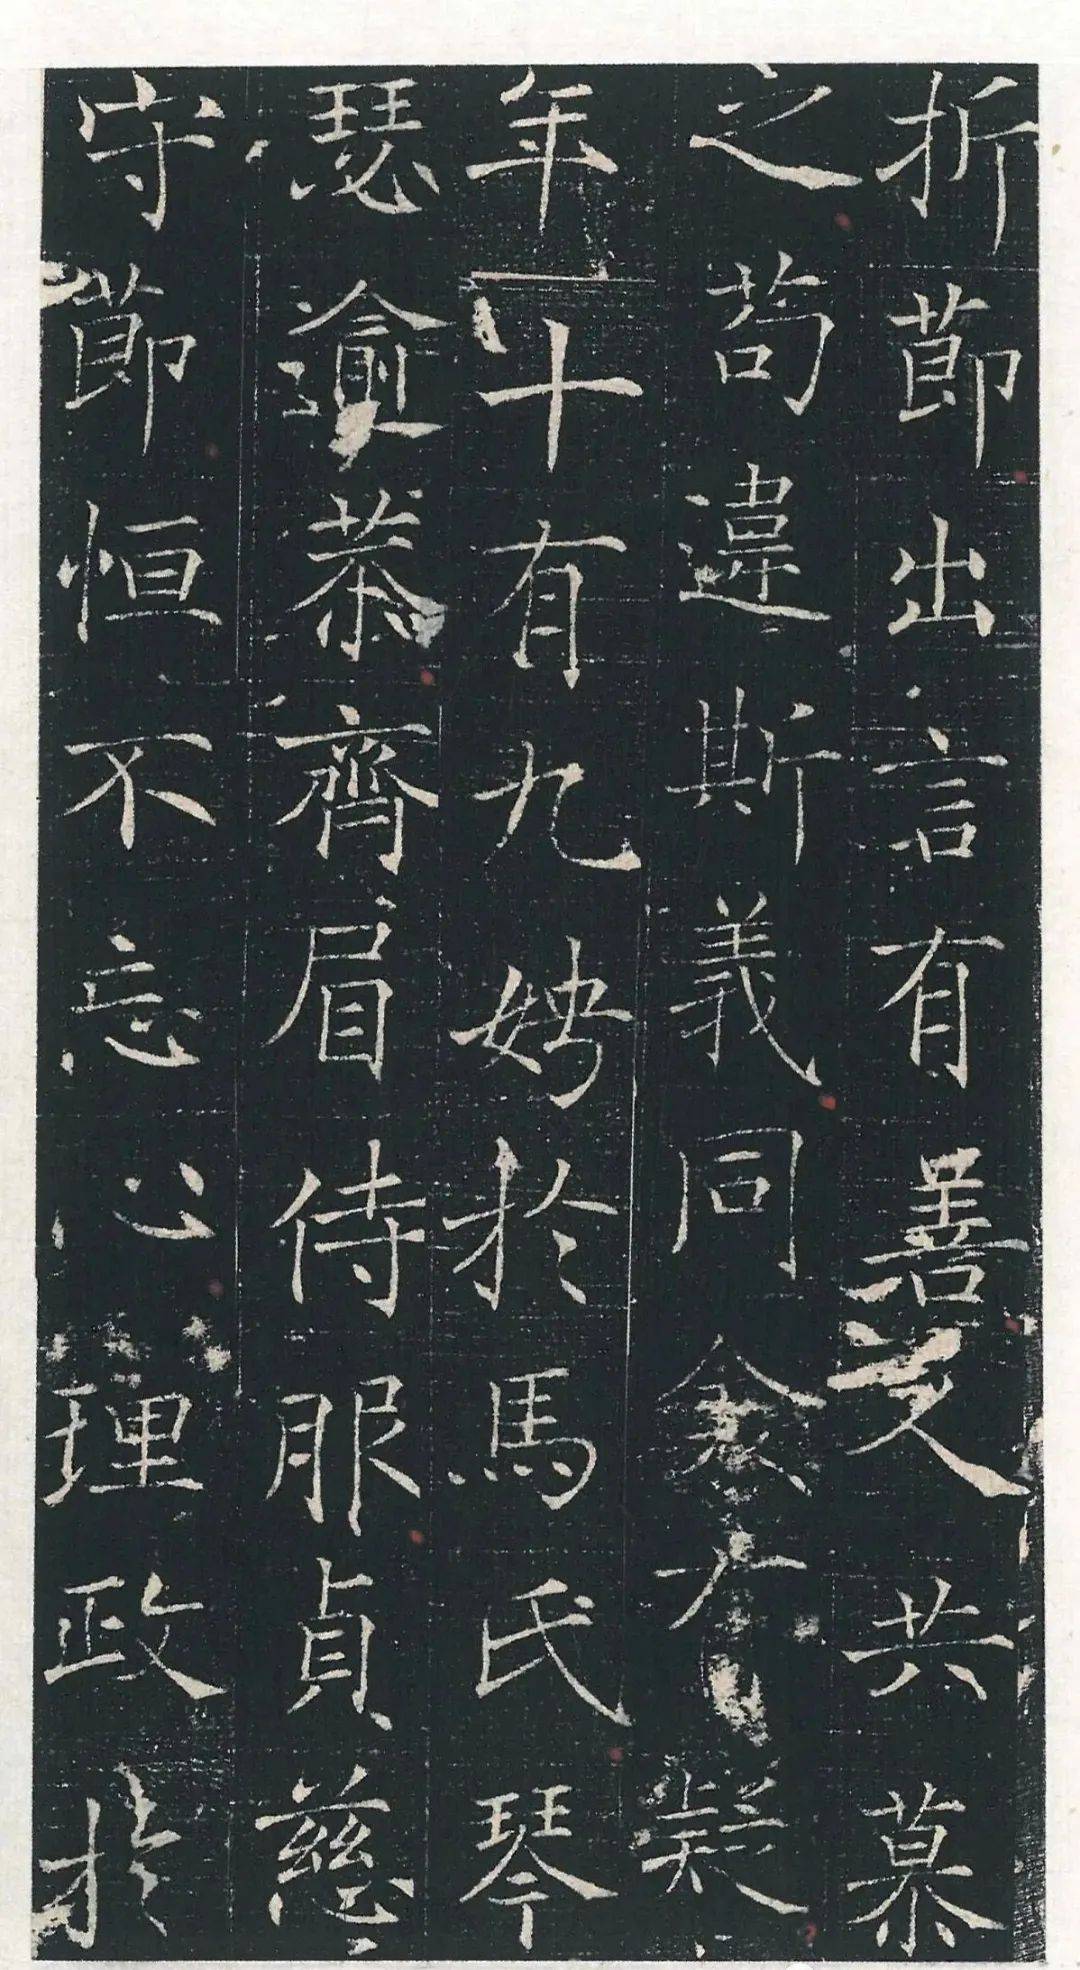 折節出言有善共慕
之苟違斯義同凝
年十有九娉於馬氏琴
瑟逾恭齊眉侍服貞慈
守節恒不忘心理政於